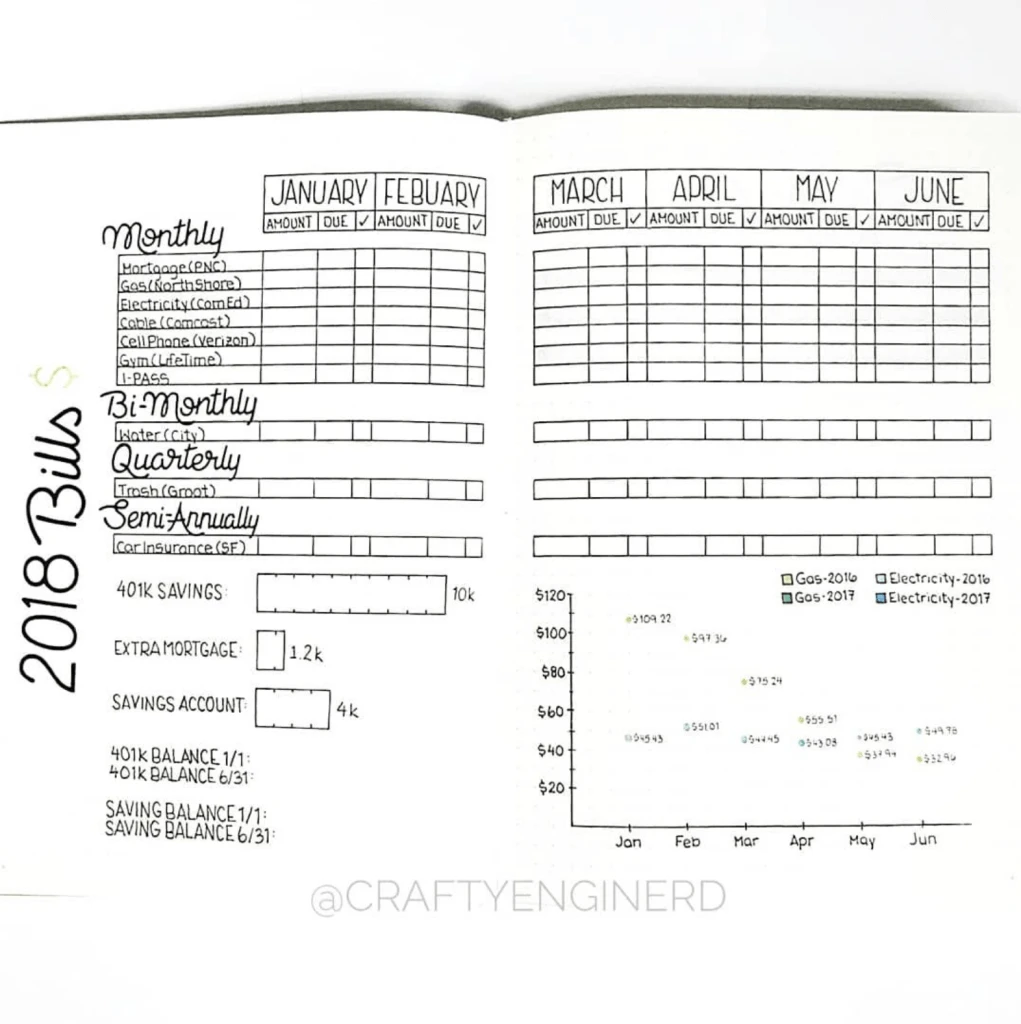 2018 Bills $
JANUARY FEBUARY
AMOUNT DUE ✓ AMOUNT DUE ✓
Monthly
Mortgage (PNC)
Gas (NorthShore)
Electricity (ComEd)
Cable (Comcast)
Cell Phone (Verizon)
Gym (LifeTime)
I-PASS
Bi-Monthly
Water (City)
Quarterly
Trash (Groot)
Semi-Annually
Car Insurance (SF)
401K SAVINGS: 10k
EXTRA MORTGAGE: 1.2k
SAVINGS ACCOUNT: 4k
401K BALANCE 1/1:
401K BALANCE 6/31:
SAVING BALANCE 1/1:
SAVING BALANCE 6/31:
MARCH APRIL MAY JUNE
AMOUNT DUE ✓ AMOUNT DUE ✓ AMOUNT DUE ✓ AMOUNT DUE ✓
Gas-2016 Electricity-2016
Gas-2017 Electricity-2017
$120
$109.22
$100
$97.36
$80
$75.24
$60
$55.51
$51.01
$49.78
$45.43 $43.03 $45.43
$40
$37.94 $32.96
$20
Jan Feb Mar Apr May Jun
@CRAFTYENGINERD